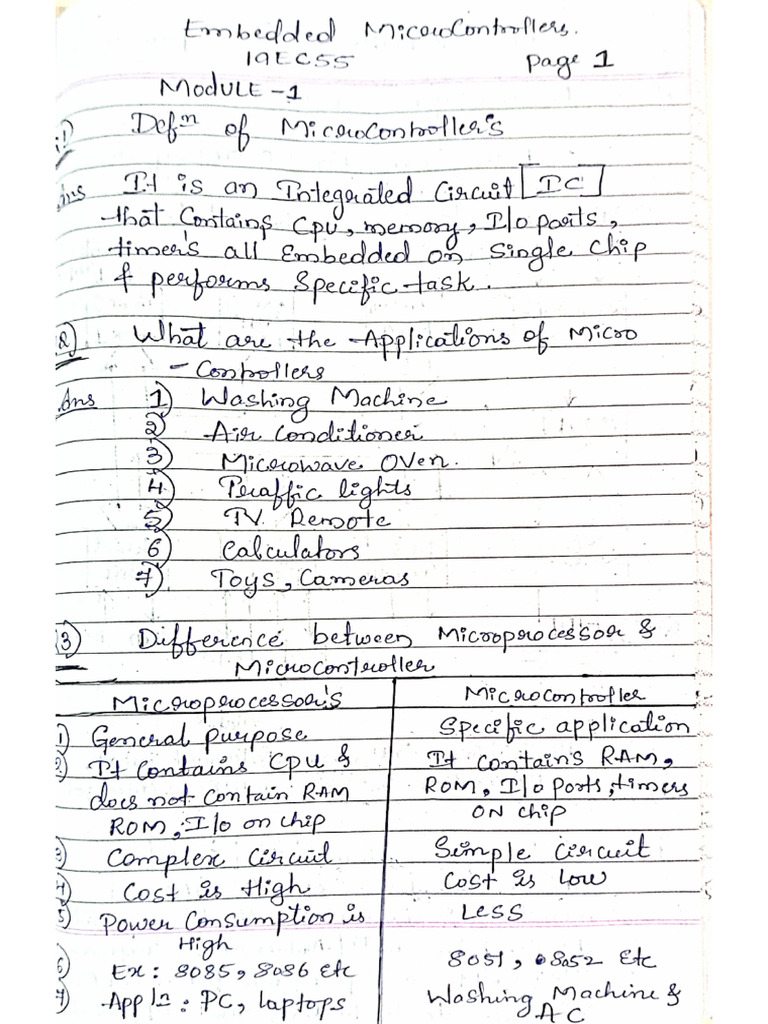 Embedded MicroControllers.
19EC55 Page 1
MODULE-1
1) Defn of MicroController's
Ans It is an Integrated Circuit [IC]
that Contains CPU, memory, I/o ports,
timer's all Embedded on Single chip
& performs Specific task.
2) What are the Applications of Micro
- Controllers
Ans 1) Washing Machine
2) Air Conditioner
3) Microwave Oven.
4) Traffic lights
5) TV Remote
6) Calculators
7) Toys, Cameras
3) Difference between Microprocessor &
Microcontroller
Microprocessor's | Microcontroller
1) General purpose | Specific application
2) It Contains CPU & | It Contain's RAM,
does not Contain RAM | ROM, I/o ports, timers
ROM, I/o on chip | ON chip
3) Complex Circuit | Simple Circuit
4) Cost is High | Cost is low
5) Power Consumption is | LESS
High
6) Ex: 8085, 8086 Etc | 8051, 8052 Etc
7) Appln: PC, laptops | Washing Machine &
AC